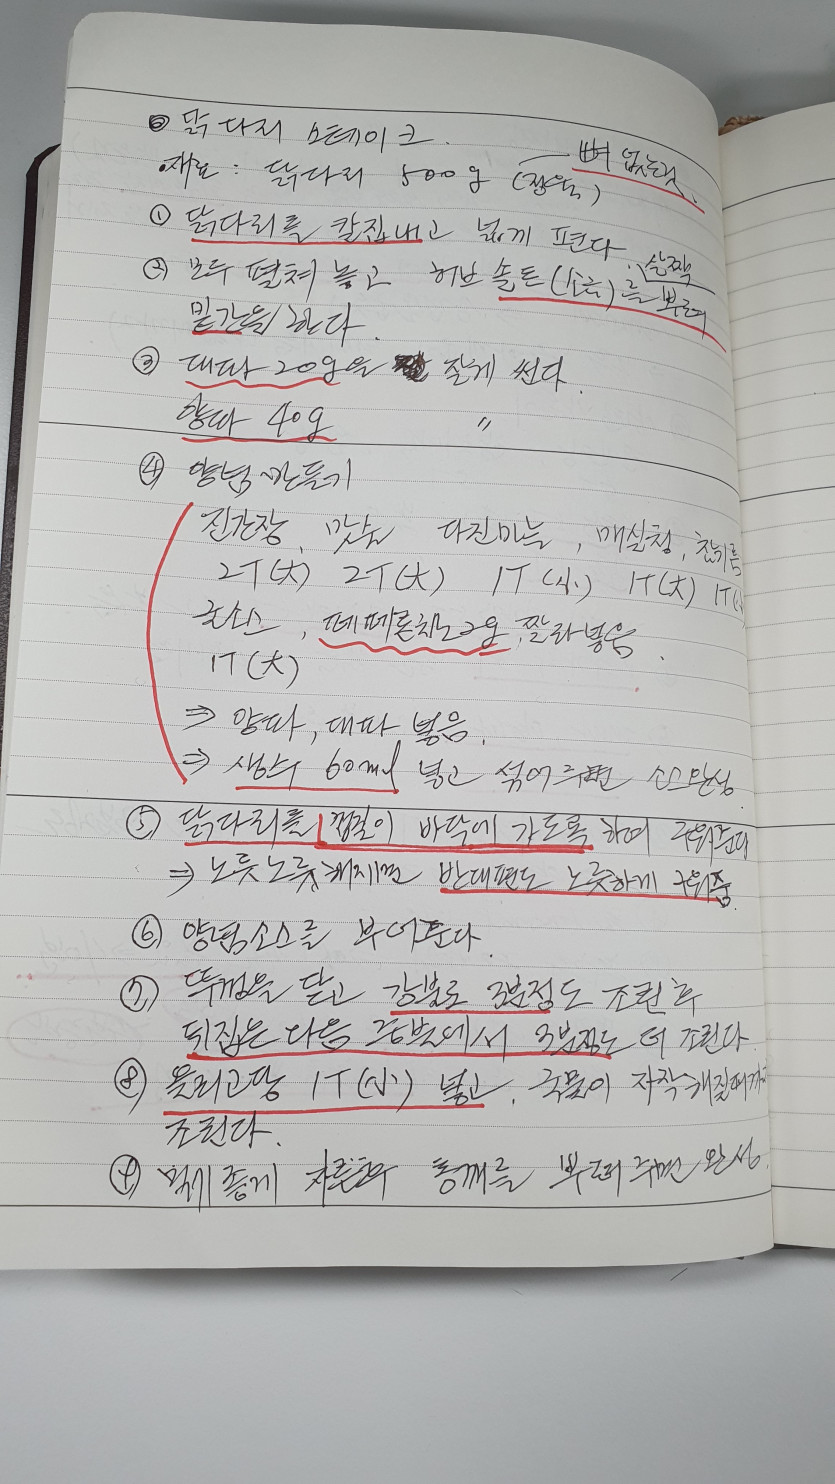 ◎ 닭다리 스테이크.
·재료 : 닭다리 500g (정육) 뼈 없는것.
① 닭다리를 칼집내고 넓게 편다.
② 모두 펼쳐 놓고 허브솔트(소금)를 살짝 뿌려
밑간을 한다.
③ 대파 20g을 잘게 썬다.
양파 40g 〃
④ 양념 만들기
진간장, 맛술 다진마늘, 매실청, 참기름
2T(大) 2T(大) 1T(小) 1T(大) 1T(小)
굴소스, 페페론치노 2g, 잘라 넣음.
1T(大)
⇒ 양파, 대파 넣음.
⇒ 생수 60ml 넣고 섞어주면 소스완성.
⑤ 닭다리를 껍질이 바닥에 가도록 하여 구워준다
⇒ 노릇노릇해지면 반대편도 노릇하게 구워줌.
⑥ 양념소스를 부어준다.
⑦ 뚜껑을 닫고 강불로 3분정도 조린 후
뒤집은 다음 중불에서 3분정도 더 조린다.
⑧ 올리고당 1T(小) 넣고, 국물이 자작해질때까지
조린다.
⑨ 먹기 좋게 자른후 통깨를 뿌려주면 완성.